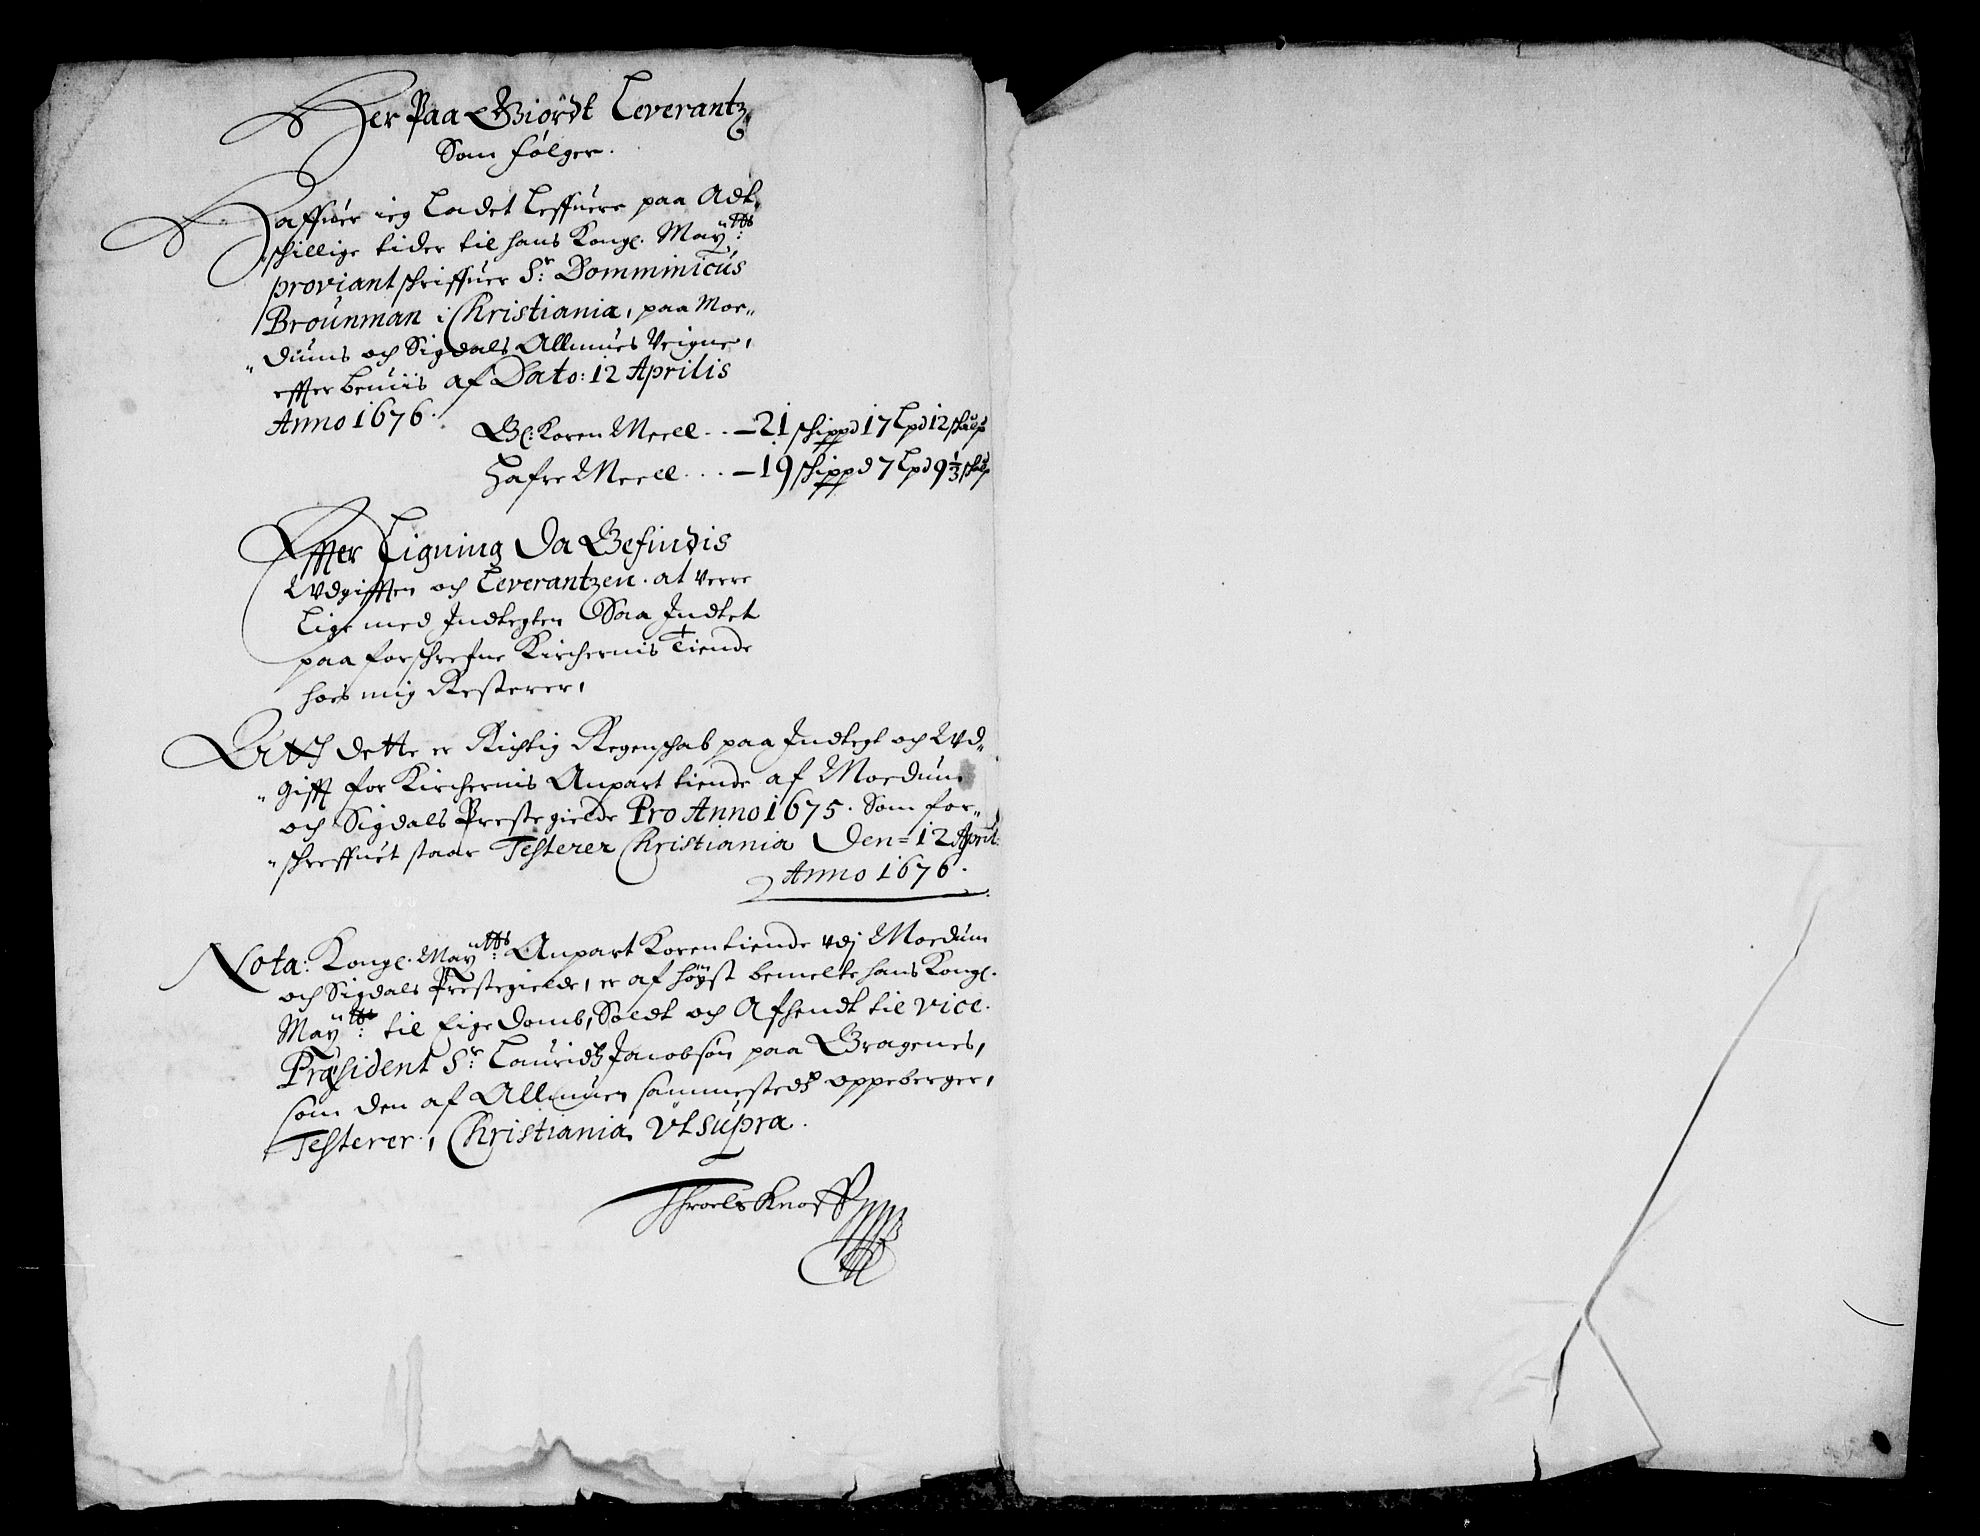 Her Paa Giordt Leverantz,
Som følger.
Haffuer ieg Ladet Leffuere paa Adt,,
schillige tider til hans Kongl. Maÿtts:
proviantschriffuer Sr: Domminicus
Brounman i Christiania, paa Moe,,
,,dums och Sigdals Allmues Veigne,
effter beuiis af Dato: 12 Aprilis
Anno 1676.
Bl: Koren Meell . . – 21 schippd 17 Lpd 12 schaalp
Hafre Meell . . . – 19 schippd 7 Lpd 9 1/3 schaalp
Effter Ligning Da Befindis
Wdgifften och Leverantzen. at verre
Lige med Indtegten Saa Indtet
paa forschrefne Kirchernis Tiende
hoes mig Resterer,
Att dette er Richtig Regenschab paa Indtegt och Wd,,
,,gifft for Kirchernis Anpart tiende af Moedum
och Sigdals Prestegielde Pro Anno 1675. Som for,,
,,schreffuet staar Testerer Christiania Den = 12 April:
Anno 1676.
Nota: Kongl. Maÿtts: Anpart Korentiende vdj Moedum
och Sigdals Prestegielde, er af høÿst bemelte hans Kongl.
Maÿtts: til Eigedomb, Soldt och Afhendt til vice.
Præsident Sr: Lauridtz Jacobsøn paa Bragenes,
som den af Allmuen sammestedtz oppeberger,
Testerer, Christiania Vt supra.
Throels Knoff